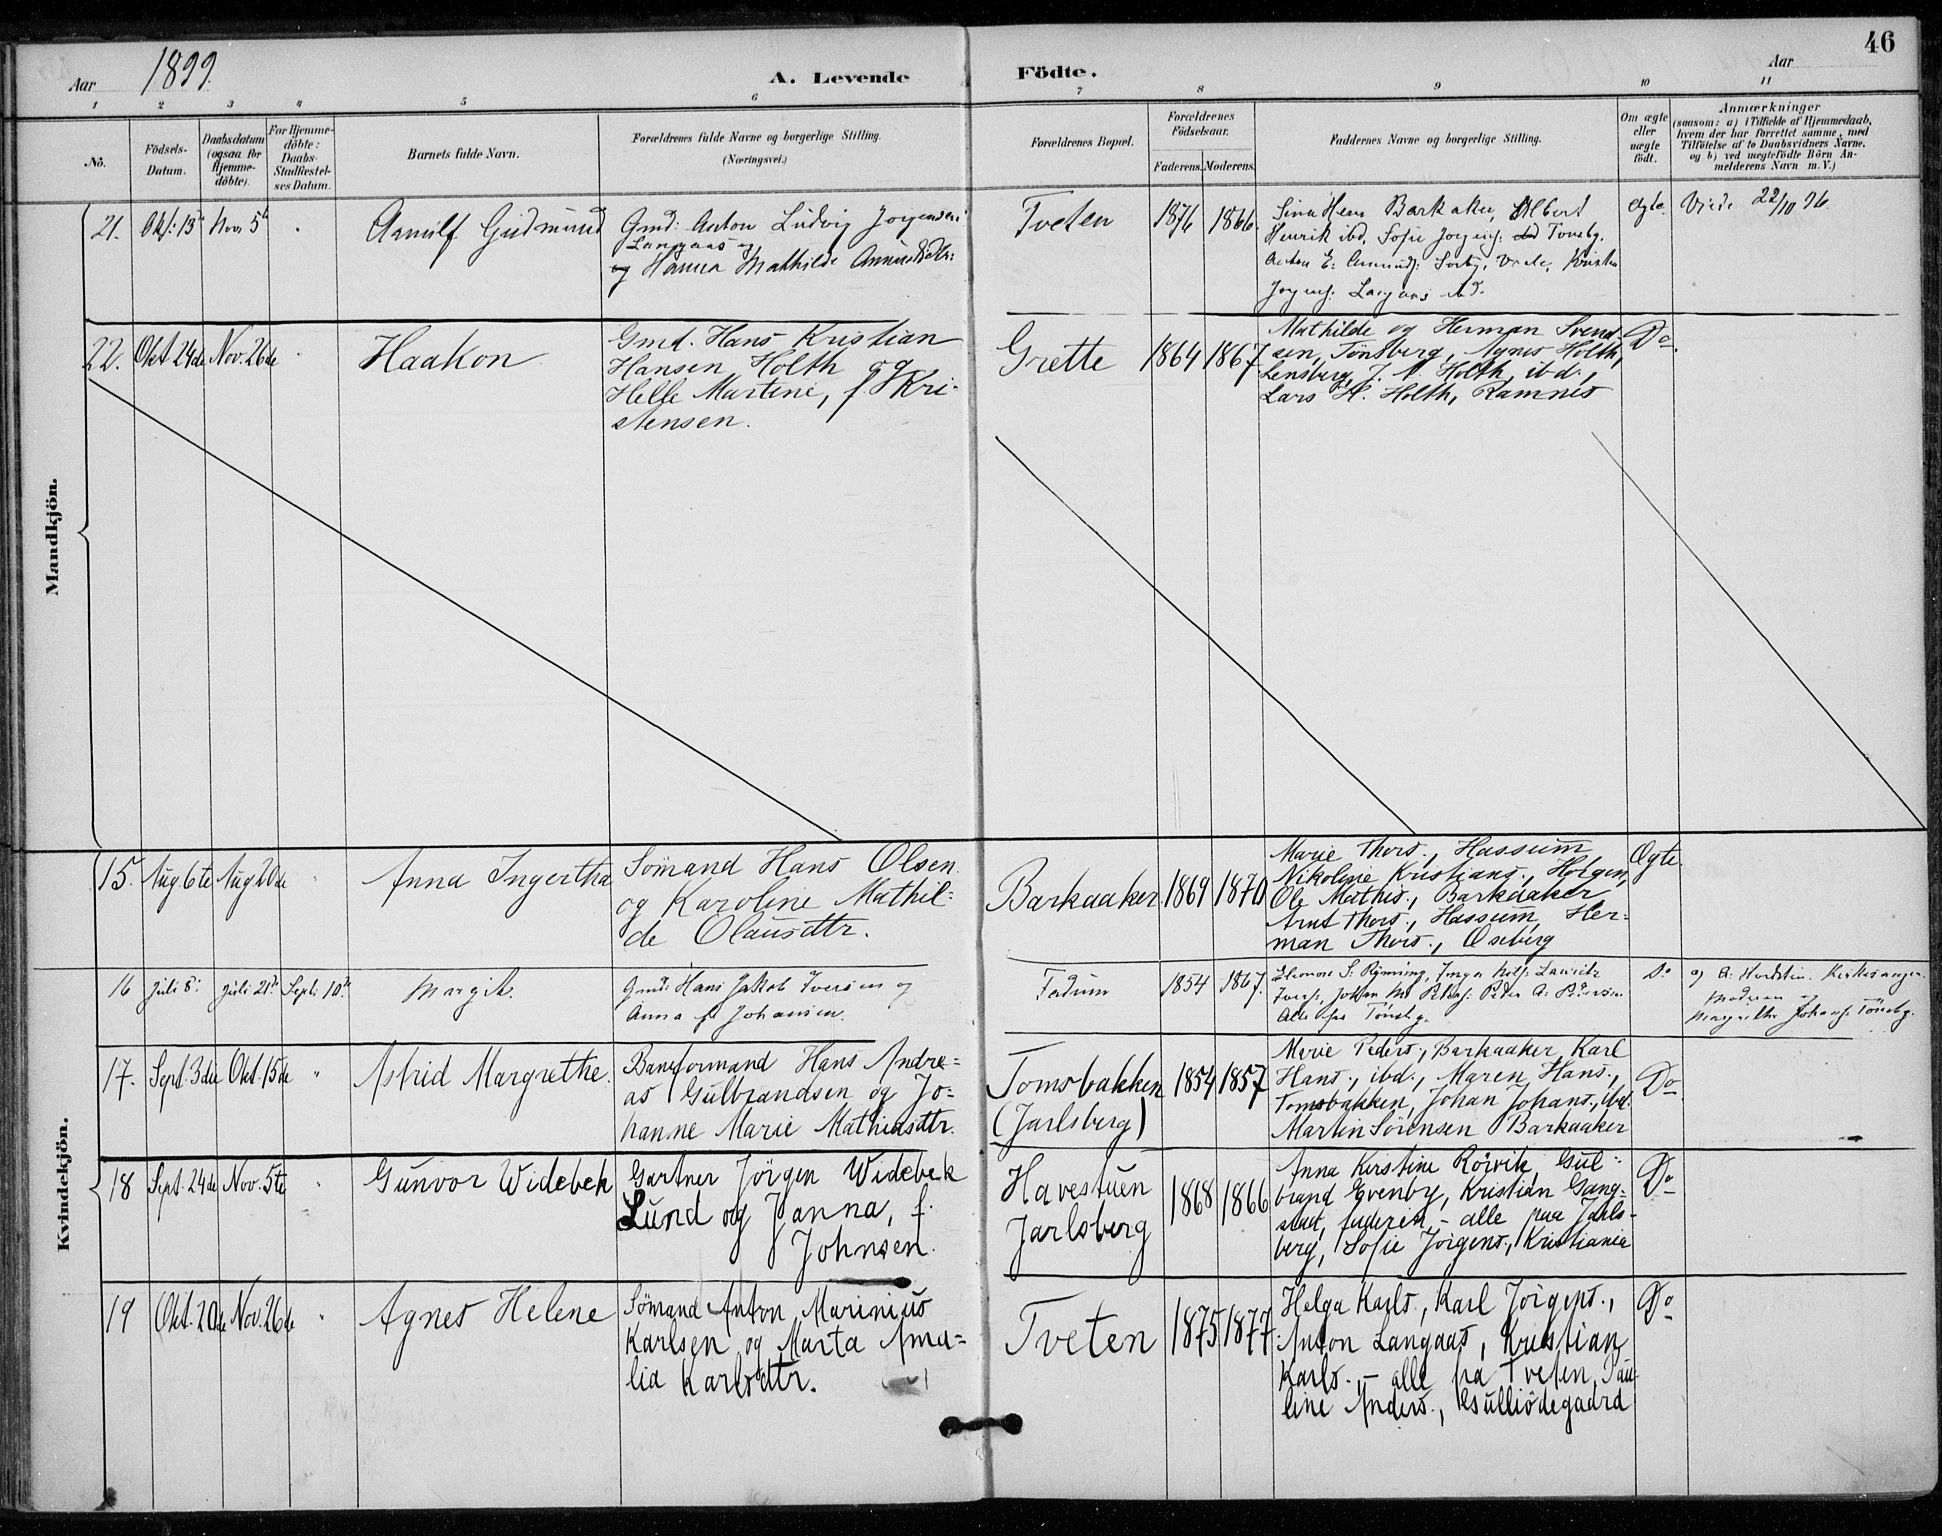 46
Aar 1899.
A. Levende Födte.
Aar
1 2 3 4 5 6 7 8 9 10 11
No.
Födsels-
Datum.
Daabsdatum
(ogsaa for
Hjemme-
döbte).
For Hjemme-
döbte:
Daabs-
Stadfæstel-
ses Datum.
Barnets fulde Navn.
Forældrenes fulde Navne og borgerlige Stilling.
(Næringsvei.)
Forældrenes Bopæl.
Forældrenes
Födselsaar.
Faderens. Moderens.
Faddernes Navne og borgerlige Stilling.
Om ægte
eller
uægte
födt.
Anmærkninger
(saasom: a) i Tilfælde af Hjemmedaab,
hvem der har forrettet samme, med
Tilföielse af to Daabsvidners Navne.
og b) ved uægtefödte Börn An-
melderens Navn m. V.)
Mandkjön.
21. Okt: 13de Nov 5te
Arnulf Gudmund
Gmd: Anton Ludvig Jorgensen
Langaas og
og Hanna Mathilde
Tveten
1876 1866.
Barkaker, Albert
Henrik ibd. Sofie Jorgens: Tonsbg.
Anton E:
Jorgens: Langaas ibd.
Ægte.
Viede 22/10 96.
22. Okt. 24de Nov. 26de
Haakon
Gmd. Hans Kristian
Hansen Holth og
Helle Martine, f. Kri-
stensen.
Grette
1864 1867
Mathilde og Herman Svend-
sen, Tönsberg, Agnes Holth,
Lensberg, J. A. Holth, ibd.,
Lars H. Holth, Ramnes
Do.
Kvindekjön.
15. Aug. 6te Aug. 20de
Anna Ingertha
Sömand Hans Olsen
og Karoline Mathil-
de Olausdtr.
Barkaaker
1869 1870
Marie Thors., Hassum
Nikoline Kristians., Holgen,
Ole Mathis., Barkaaker
Arnt Thors., Hassum, Her-
man Thors., Oseberg
Ægte.
16 juli 8: juli 21de Sept: 10de
Margit.
Gmd: Hans Jakob Iversen og
Anna f. Johansen.
Fadum
1854 1867.
Eleonore S:
Ivers:, Johan M. Peders: Peder A: Pedersen
Alle fra Tönsbg.
Do
a) A: Kirkesanger.
Moderen og
Margrethe Johans: Tönsbg.
17. Sept. 3die Okt. 15de "
Astrid Margrethe.
Baneformand Hans Andre-
as Gulbrandsen og Jo-
hanne Marie Mathiasdtr.
Tomsbakken
(Jarlsberg)
1854 1857
Marie Peders., Barkaaker, Karl
Hans., ibd., Maren Hans.,
Tomsbakken, Johan Johans., ibd.
Martin Sörensen Barkaaker
Do
18 Sept. 24de Nov. 5te
Gunvor Widebek
Gartner Jörgen Widebek
Lund og Janna, f.
Johnsen.
Havestuen
Jarlsberg
1868 1866
Anna Kirstine Rörvik, Gul-
brand Evenby, Kristian Gang-
stad, faderen, – alle paa Jarls-
berg, Sofie Jörgens., Kristiania
Do
19 Okt. 20de Nov. 26de "
Agnes Helene
Sömand Anton Marinius
Karlsen og Marta Ama-
lia Karlsdtr.
Tveten
1875 1877
Helga Karls., Karl Jörgens.,
Anton Langaas, Kristian
Karls., – alle fra Tveten, Pau-
line Anders., Gulliödegaard
Do